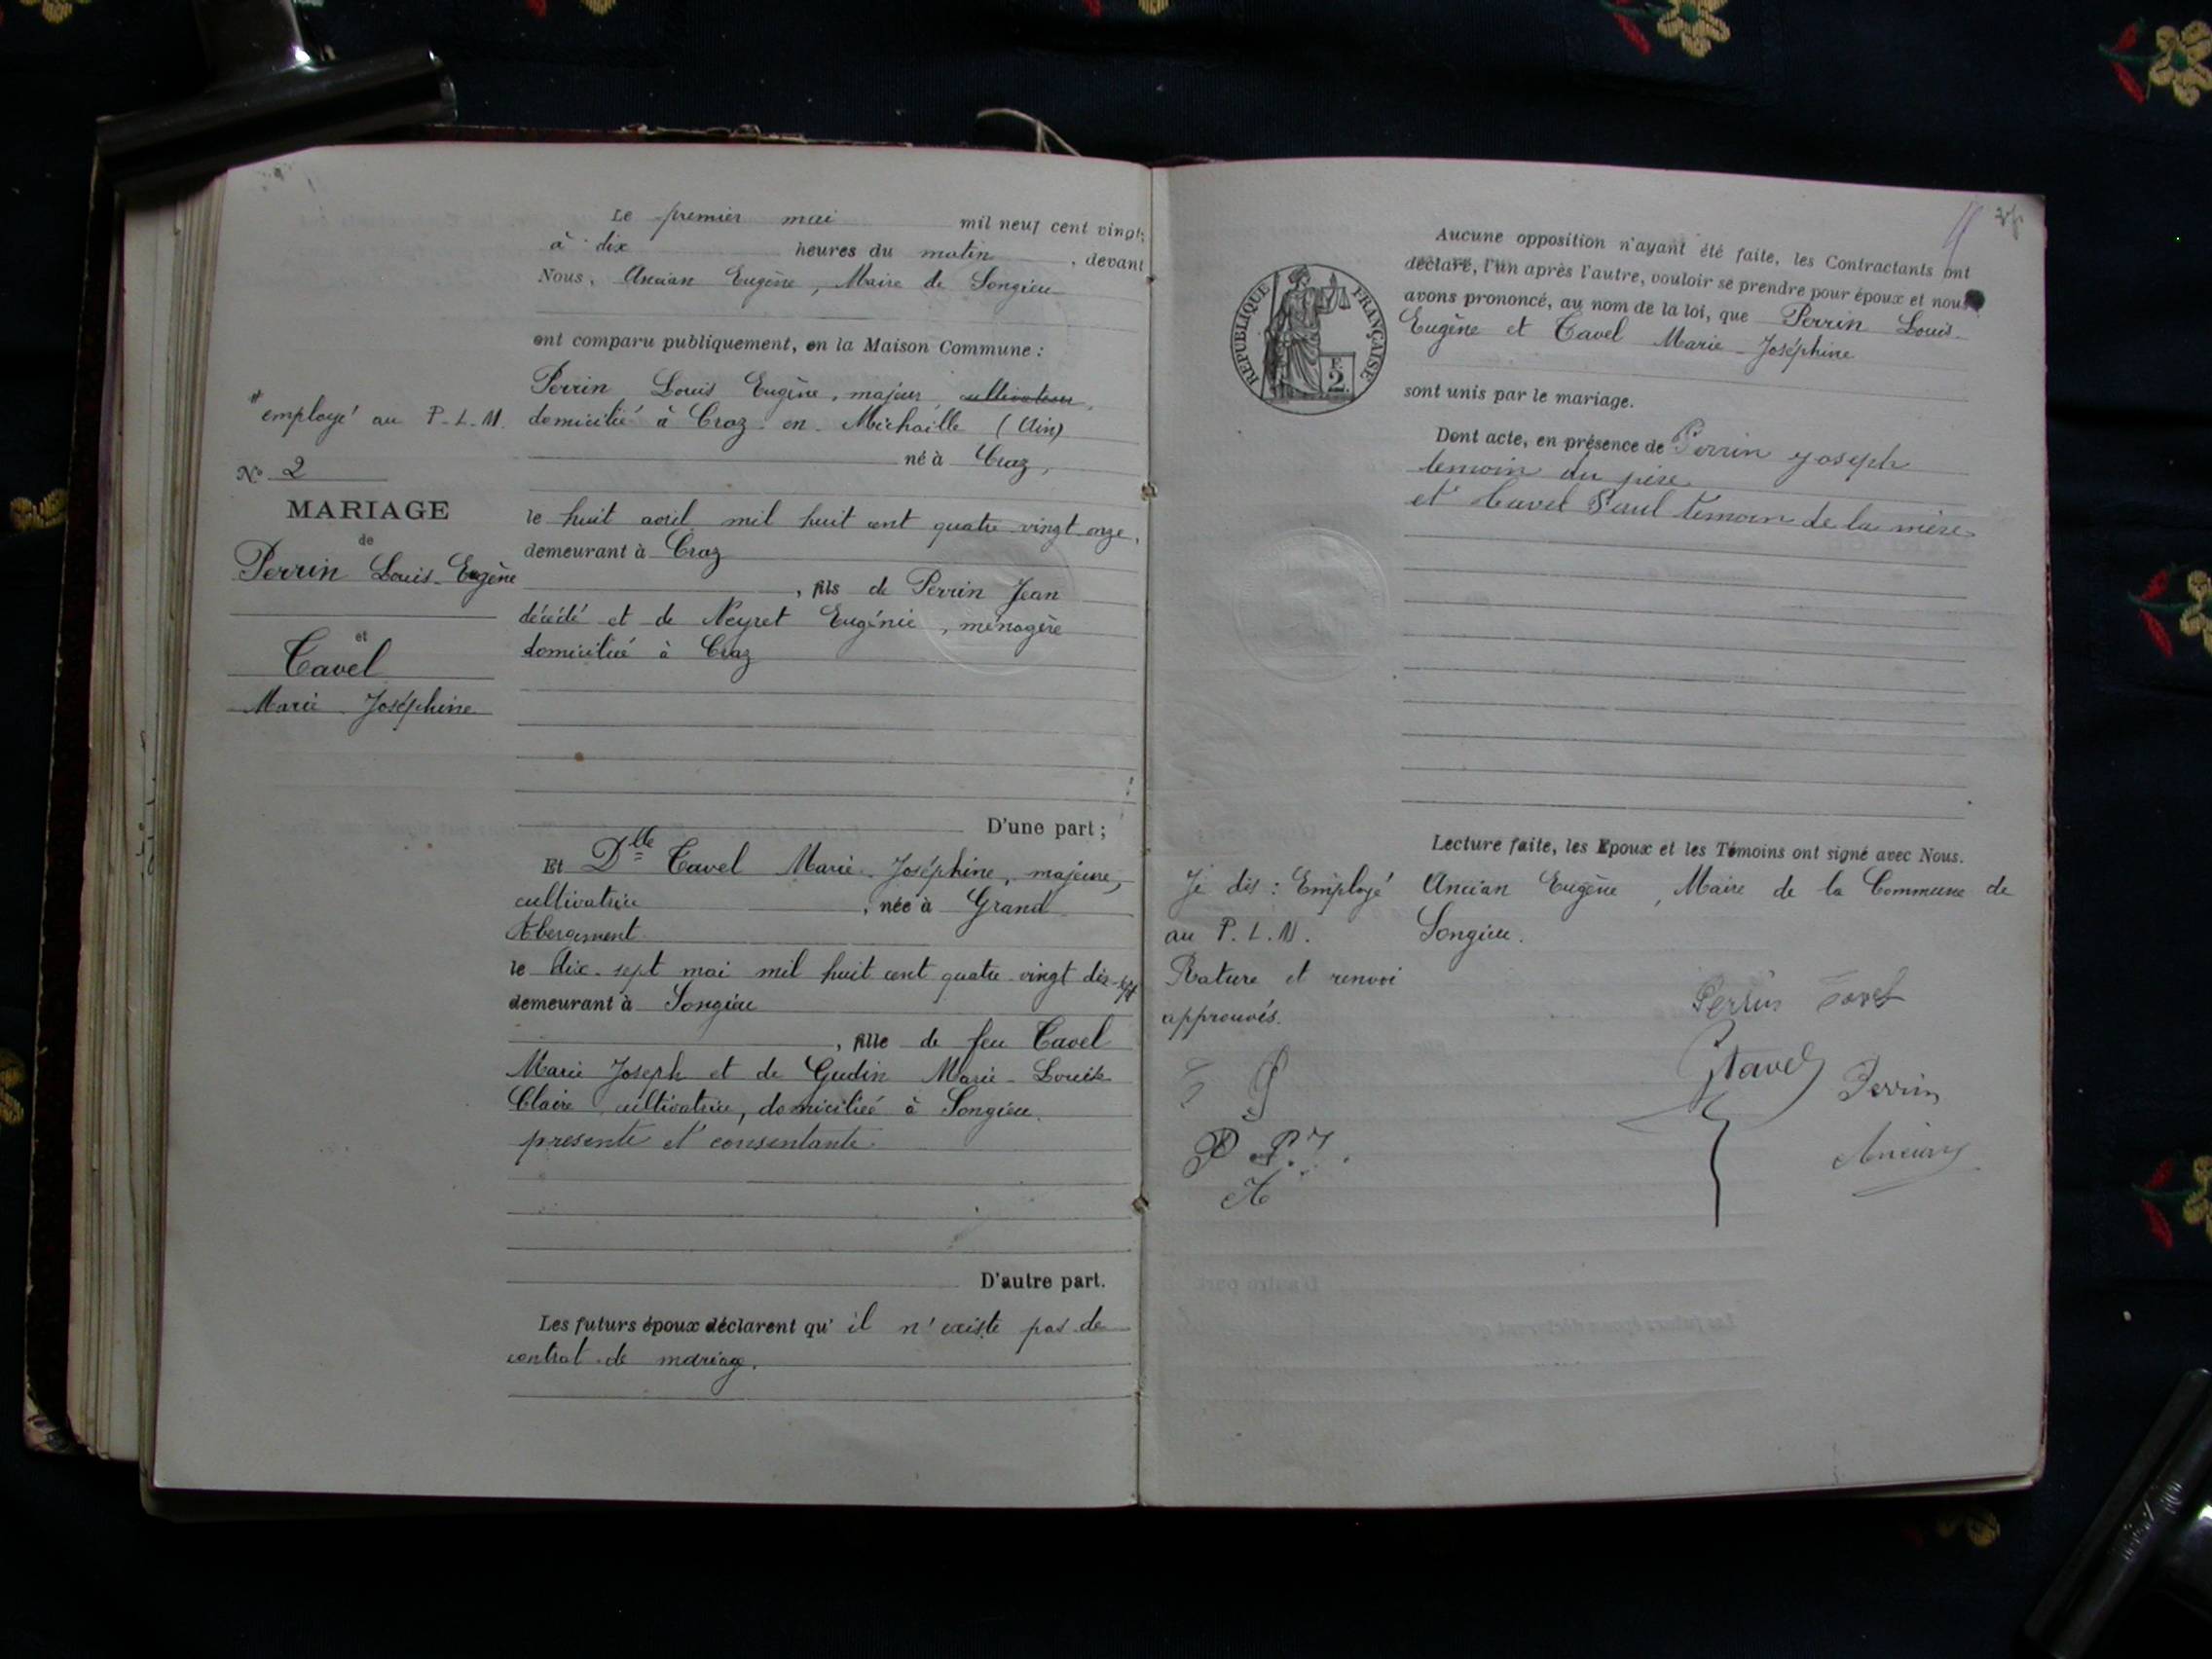 Le premier mai mil neuf cent vingt,
à dix heures du matin, devant
Nous, Ancian Eugène, Maire de Songieu
ont comparu publiquement, en la Maison Commune :
Perrin Louis Eugène, majeur, cultivateur,
domicilié à Craz en Michaille (Ain)
né à Craz,
le huit avril mil huit cent quatre vingt onze,
demeurant à Craz
, fils de Perrin Jean
décédé et de Neyret Eugénie, ménagère
domiciliée à Craz
D'une part ;
Et Dlle Tavel Marie-Joséphine, majeure,
cultivatrice, née à Grand
Abergement
le dix-sept mai mil huit cent quatre vingt dix-sept
demeurant à Songieu
, fille de feu Tavel
Marie Joseph et de Gudin Marie-Louise
Claire, cultivatrice, domiciliée à Songieu.
presente et consentante.
D'autre part.
Les futurs époux déclarent qu'il n'existe pas de
contrat de mariage.
employé au P.L.M.
No 2
MARIAGE
de
Perrin Louis-Eugène
et
Tavel
Marie Joséphine
RÉPUBLIQUE FRANÇAISE
2
Aucune opposition n'ayant été faite, les Contractants ont
déclaré, l'un après l'autre, vouloir se prendre pour époux et nous
avons prononcé, au nom de la loi, que Perrin Louis-
Eugène et Tavel Marie-Joséphine
sont unis par le mariage.
Dont acte, en présence de Perrin Joseph
temoin du père
et Tavel Paul temoin de la mère
Lecture faite, les Epoux et les Témoins ont signé avec Nous.
Ancian Eugène, Maire de la Commune de
Songieu.
Je dis : Employé
au P.L.M.
Rature et renvoi
approuvés.
Perrin Tavel
Tavel
Perrin
Ancian